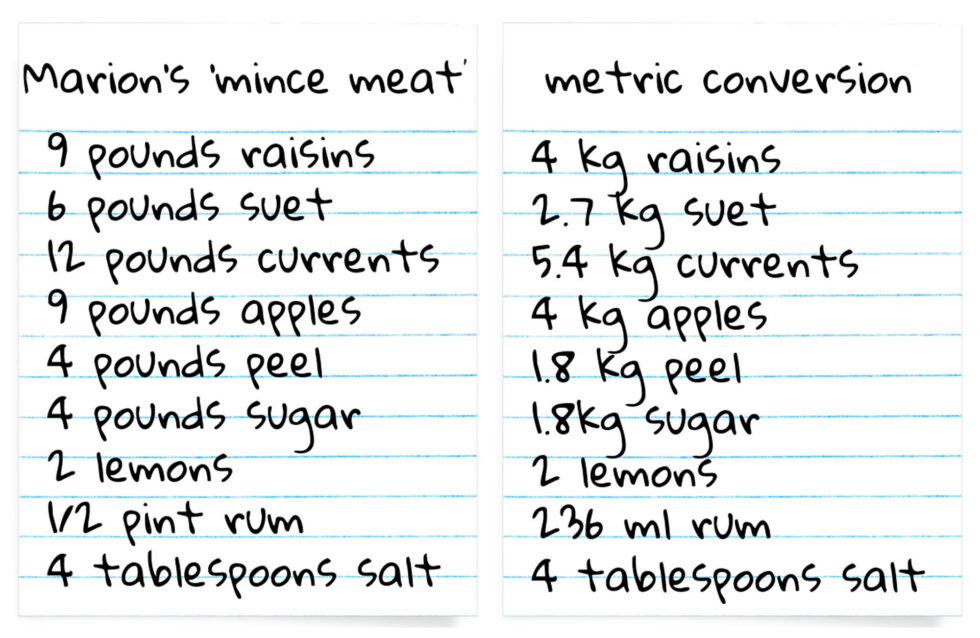 Marion's 'mince meat'
9 pounds raisins
6 pounds suet
12 pounds currents
9 pounds apples
4 pounds peel
4 pounds sugar
2 lemons
1/2 pint rum
4 tablespoons salt
metric conversion
4 kg raisins
2.7 kg suet
5.4 kg currents
4 kg apples
1.8 kg peel
1.8kg sugar
2 lemons
236 ml rum
4 tablespoons salt